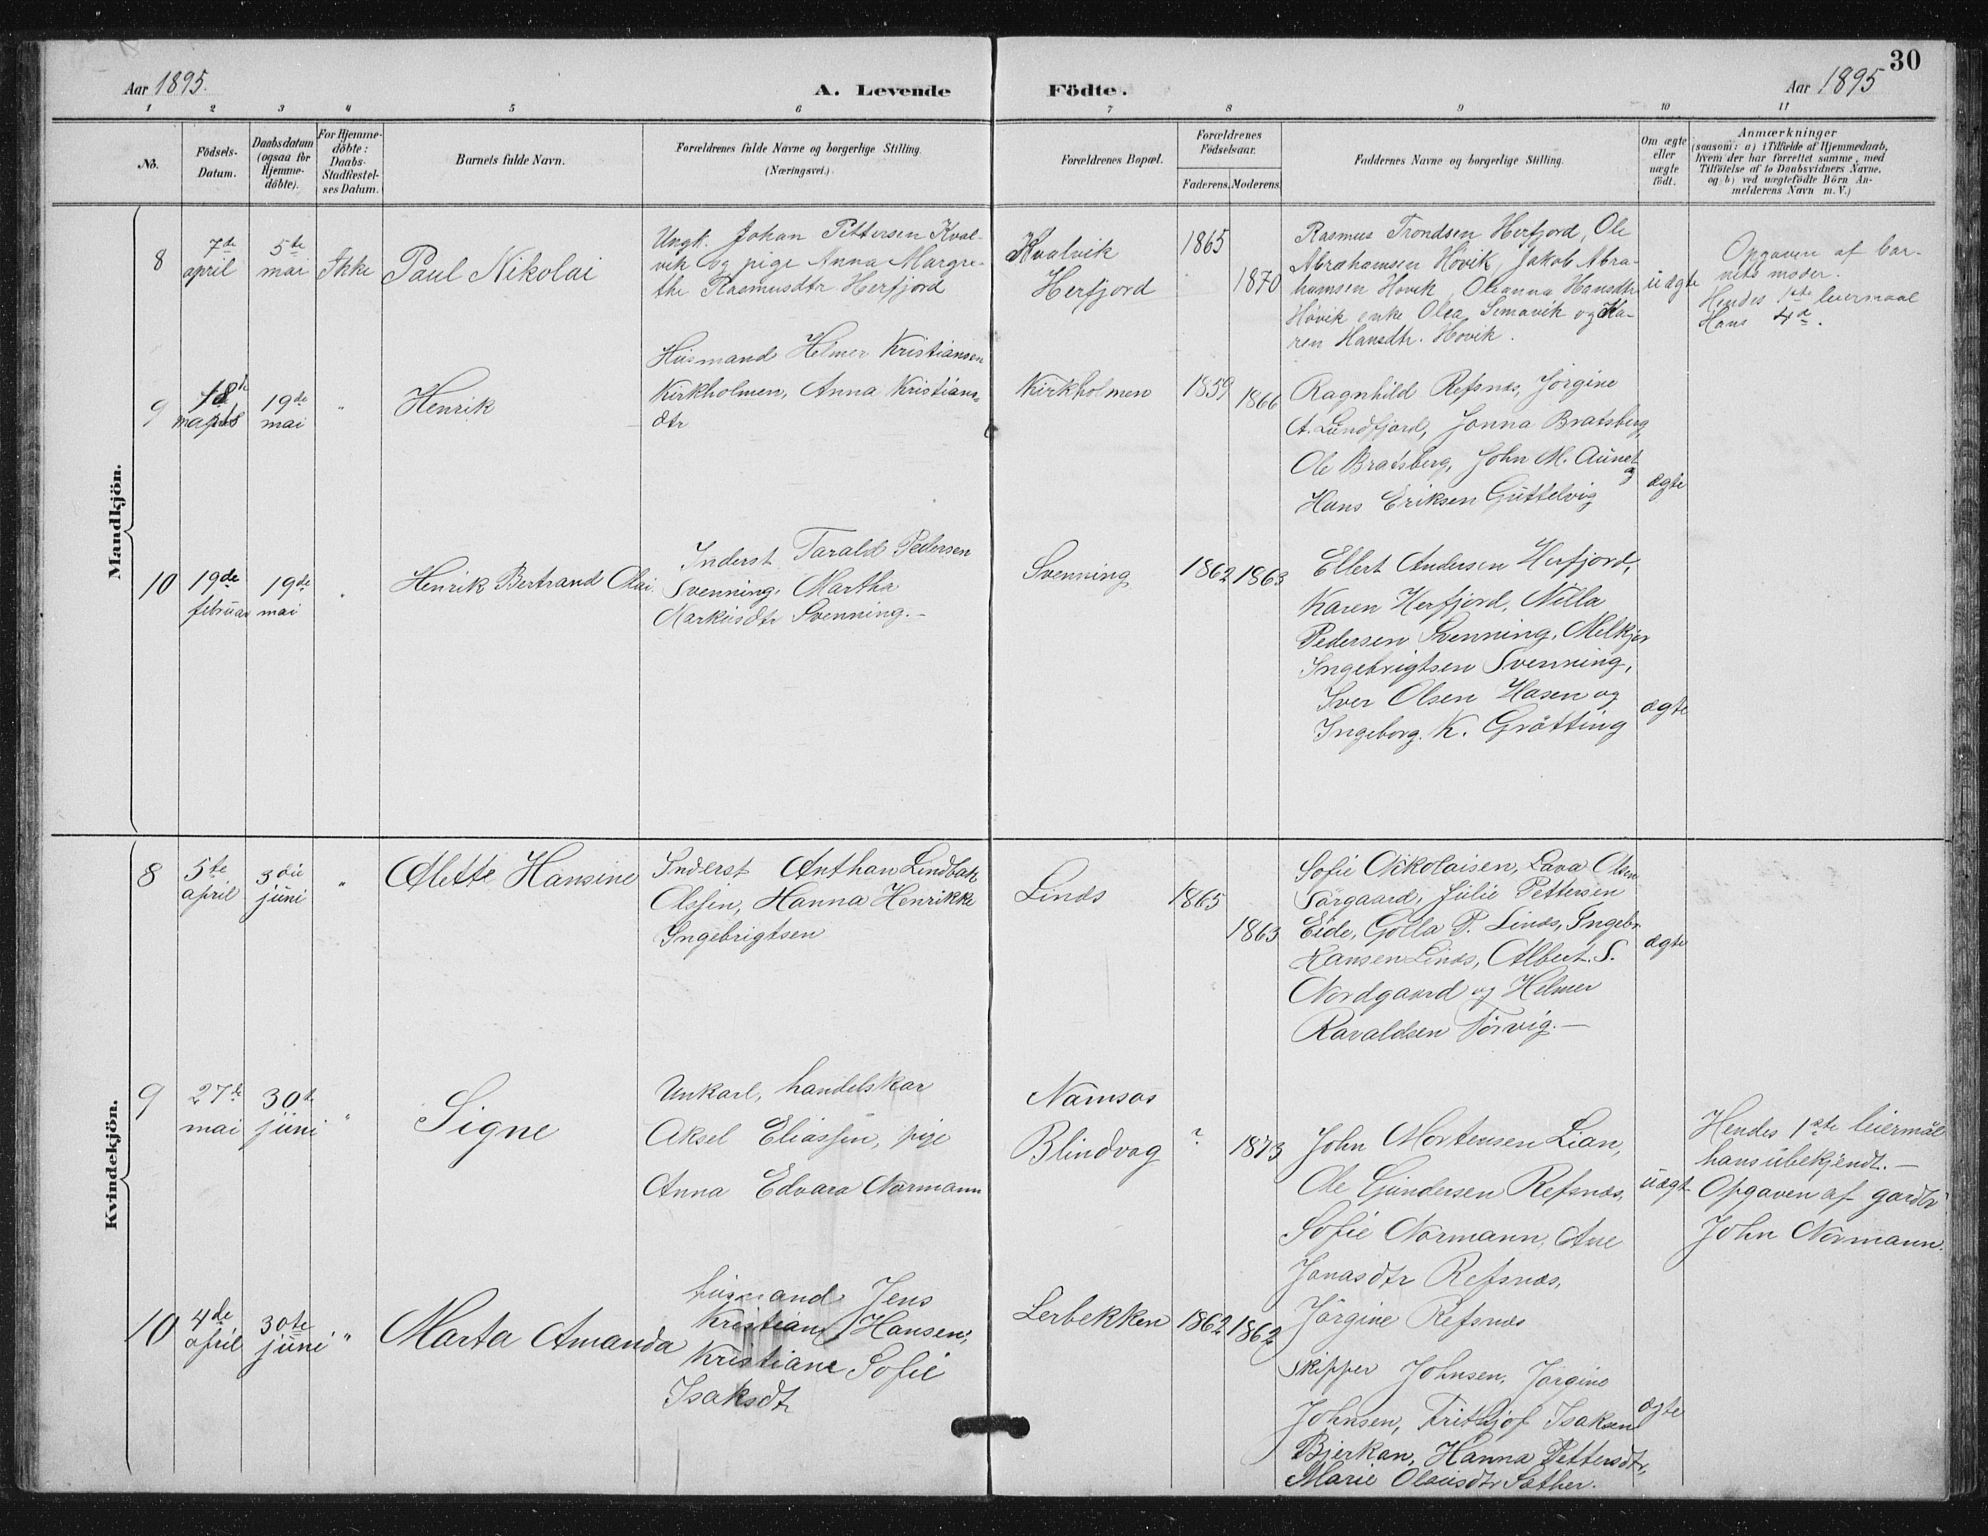 30
Aar 1895.
A. Levende Födte.
Aar 1895
1 2 3 4 5 6 7 8 9 10 11
No.
Födsels-
Datum.
Daabsdatum
(ogsaa for
Hjemme-
döbte).
For Hjemme-
döbte:
Daabs-
Stadfæstel-
ses Datum.
Barnets fulde Navn.
Forældrenes fulde Navne og borgerlige Stilling.
(Næringsvei.)
Forældrenes Bopæl.
Forældrenes
Födselsaar.
Faderens. Moderens.
Faddernes Navne og borgerlige Stilling.
Om ægte
eller
uægte
födt.
Anmærkninger
(saasom: a) i Tilfælde af Hjemmedaab,
hvem der har forrettet samme, med
Tilföielse af to Daabsvidners Navne,
og b) ved uægtefödte Börn An-
melderens Navn m. V.)
Mandkjön.
8
7de
april
5te
mai
Ikke
Paul Nikolai
Ungk. Johan Pettersen Kval-
vik og pige Anna Margre-
the Rasmusdtr Herfjord
Kvalvik
Herfjord
1865
1870
Rasmus Trondsen Herfjord, Ole
Abrahamsen Hovik, Jakob Abra-
hamsen Hovik, Oleanna Hansdtr
Hövik enke Olea Semavik og Ka-
ren Hansdtr. Hovik.
uægte
Opgaven af bar-
nets moder.
Hendes 1ste leiermaal
Hans 4de.
9
18
marts
19de
mai
"
Henrik
Husmand Helmer Kristiansen
Kirkholmen, Anna Kristians-
dtr
Kirkholmen
1859
1866
Ragnhild Refsnæs, Jörgine
A. Lundfjord, Jonna Bratsberg,
Ole Bratsberg, John M. Aunet
og
Hans Eriksen Guttelvig
ægte
10
19de
februar
19de
mai
"
Henrik Bertrand Olai
Inderst Tarald Pedersen
Svenning, Martha
Markusdtr Svenning.-
Svenning
1862
1863
Ellert Andersen Herfjord,
Karen Herfjord, Nilla
Pedersen Svenning, Melkjor
Ingebrigtsen Svenning,
Iver Olsen Hasen og
Ingeborg. K. Gråtting
ægte
Kvindekjön.
8
5te
april
3die
juni
"
Alette Hansine
Inderst Anthan Lindbak
Olssen, Hanna Henrikke
Ingebrigtsen
Linds
1865
1863
Sofie Nikolaisen, Lava Olsen
Sörgaard, Julie Pettersen
Eide, Golla P. Linds, Ingebr.
Hansen Linds, Albert. S.
Nordgaard og Helmer
Ravaldsen Törvig.-
ægte
9
27de
mai
30te
juni
"
Signe
Unkarl, handelskar
Aksel Eliassen, pige
Anna Edvara Normann
Namsos
Blindvag
?
1873
John Mortensen Lian,
Ole Gundersen Refsnæs,
Sofie Normann, Ane
Jonasdtr Refsnæs,
Jörgine Refsnæs
uægt
Hendes 1ste leiermål
hans ubekjendt.-
Opgaven af gardbr
John Normann.
10
4de
april
30te
juni
"
Marta Amanda
husmand Jens
Kristian Hansen,
Kristiane Sofie
Isaksdtr
Lerbekken
1862
1862
Skipper Johnsen, Jörgine
Johnsen, Frithjof Isaksen
Bjerkan, Hanna Pettersdtr,
Marie Olausdtr Sæther.
ægte